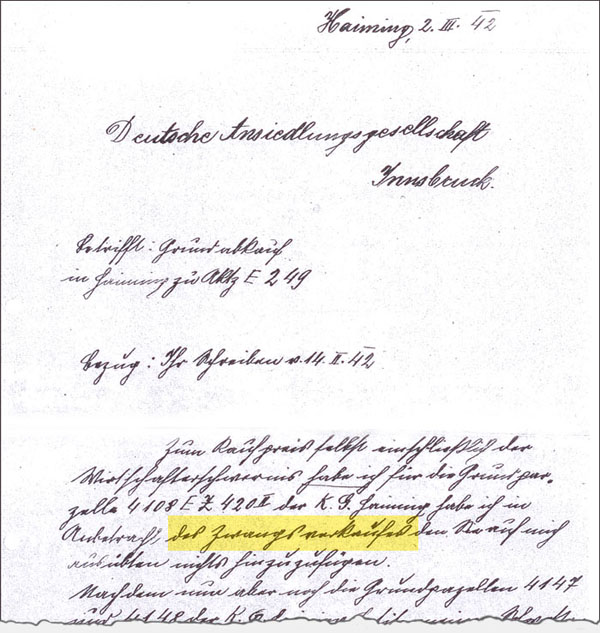 Haiming, 2. III. 42
Deutsche Ansiedlungsgesellschaft
Innsbruck.
betrifft: Grundabkauf
in Haiming zu Aktz E 249
bezug: Ihr Schreiben v. 14. II. 42
Zum Kaufpreis selbst einschließlich der
Wirtschafterschwernis habe ich für die Grundpar-
zelle 4108 E Z 420 II der K. G. Haiming habe ich in
Anbetracht, des Zwangsverkaufes den Sie auf mich
ausübten nichts hinzuzufügen.
Nachdem nun aber noch die Grundpazellen 4147
und 4148 der K. G.